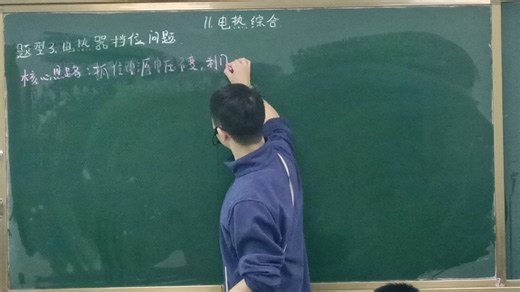 11.电热综合
题型3.电热器档位问题
核心思路:抓住电源电压不变,利